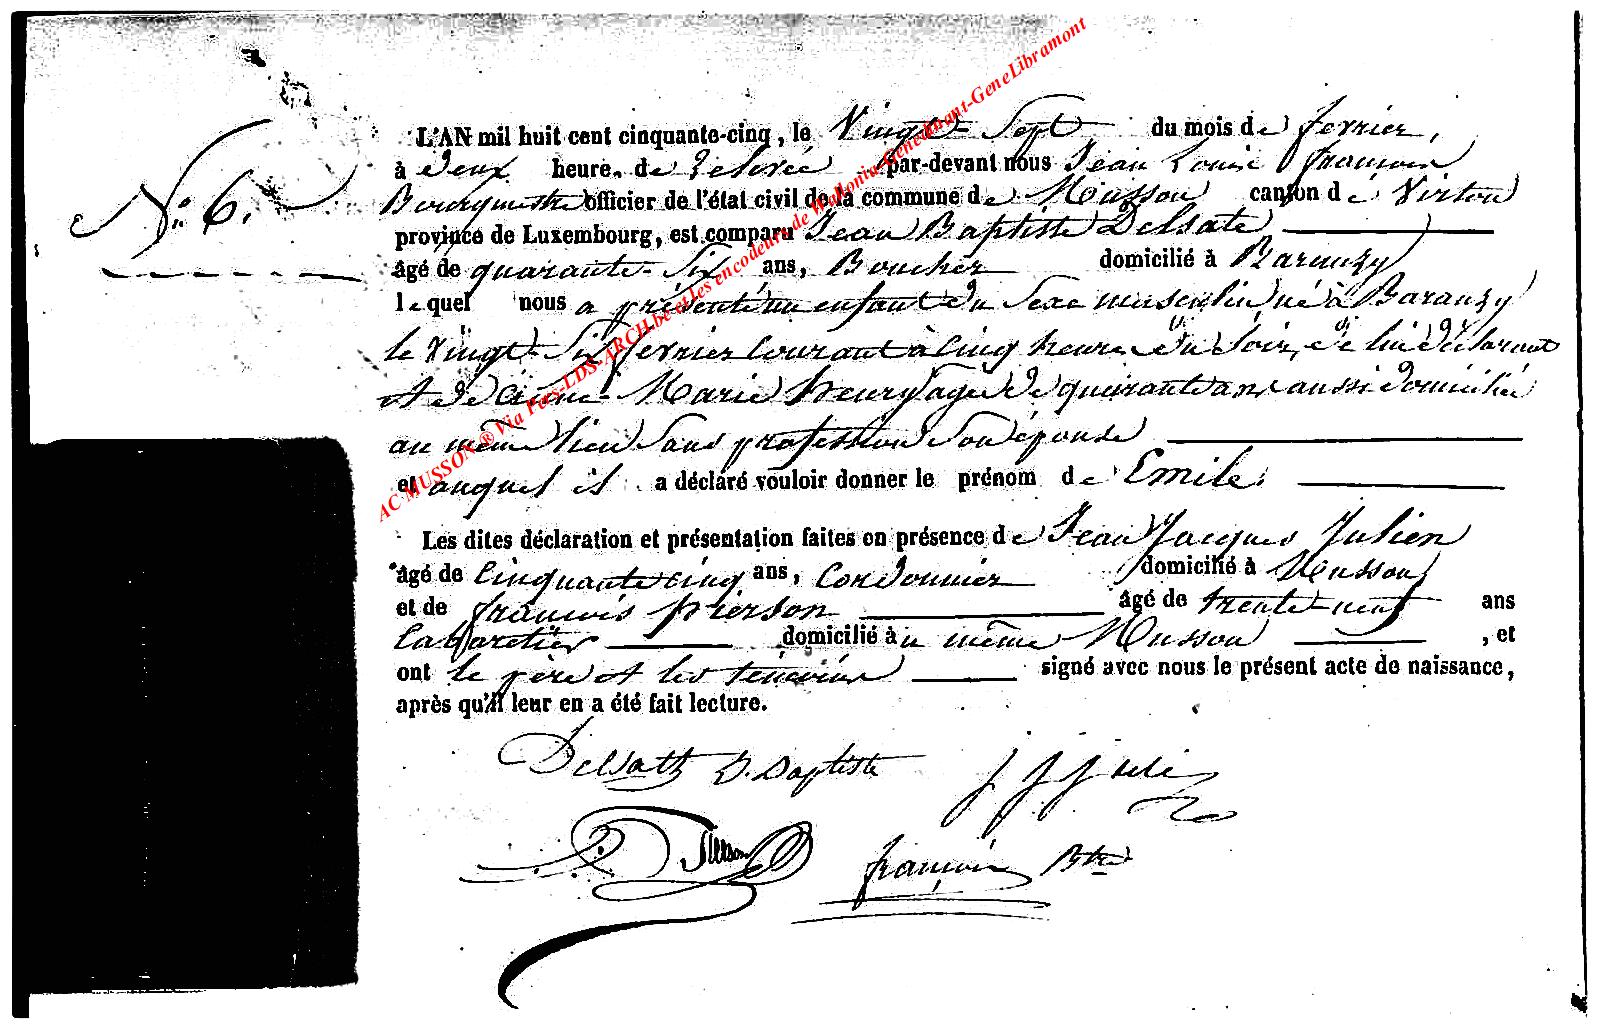 N.º 6.
L'AN mil huit cent cinquante-cinq, le Vingt-Sept du mois de fevrier,
à deux heure. de relevée par-devant nous Jean Louis françois
Bourgmestre officier de l'état civil de la commune de Musson canton de Virton
province de Luxembourg, est comparu Jean Baptiste Delsate
âgé de quarante-Six ans, Boucher domicilié à Baranzy
lequel nous a présenté un enfant du Sexe masculin né à Baranzy
le Vingt-Six fevrier courant à cinq heures du Soir, de lui déclarant
et de Anne-Marie henry âgée de quarante ans aussi domiciliée
au même lieu Sans profession Son épouse
et auquel il a déclaré vouloir donner le prénom de Emile.
Les dites déclaration et présentation faites en présence de Jean Jacques Julien
âgé de cinquante cinq ans, Cordonnier domicilié à Musson
et de françois pierson âgé de trente-neuf ans
Cabaretier domicilié au même Musson , et
ont le père et les témoins signé avec nous le présent acte de naissance,
après qu'il leur en a été fait lecture.
Delsatte J. Baptiste J J Juli
françois Btre
AC MUSSON ® Via Fers-LDS-ARCH.be et les encodeurs de Wallonia-Genedinant-GeneLibramont